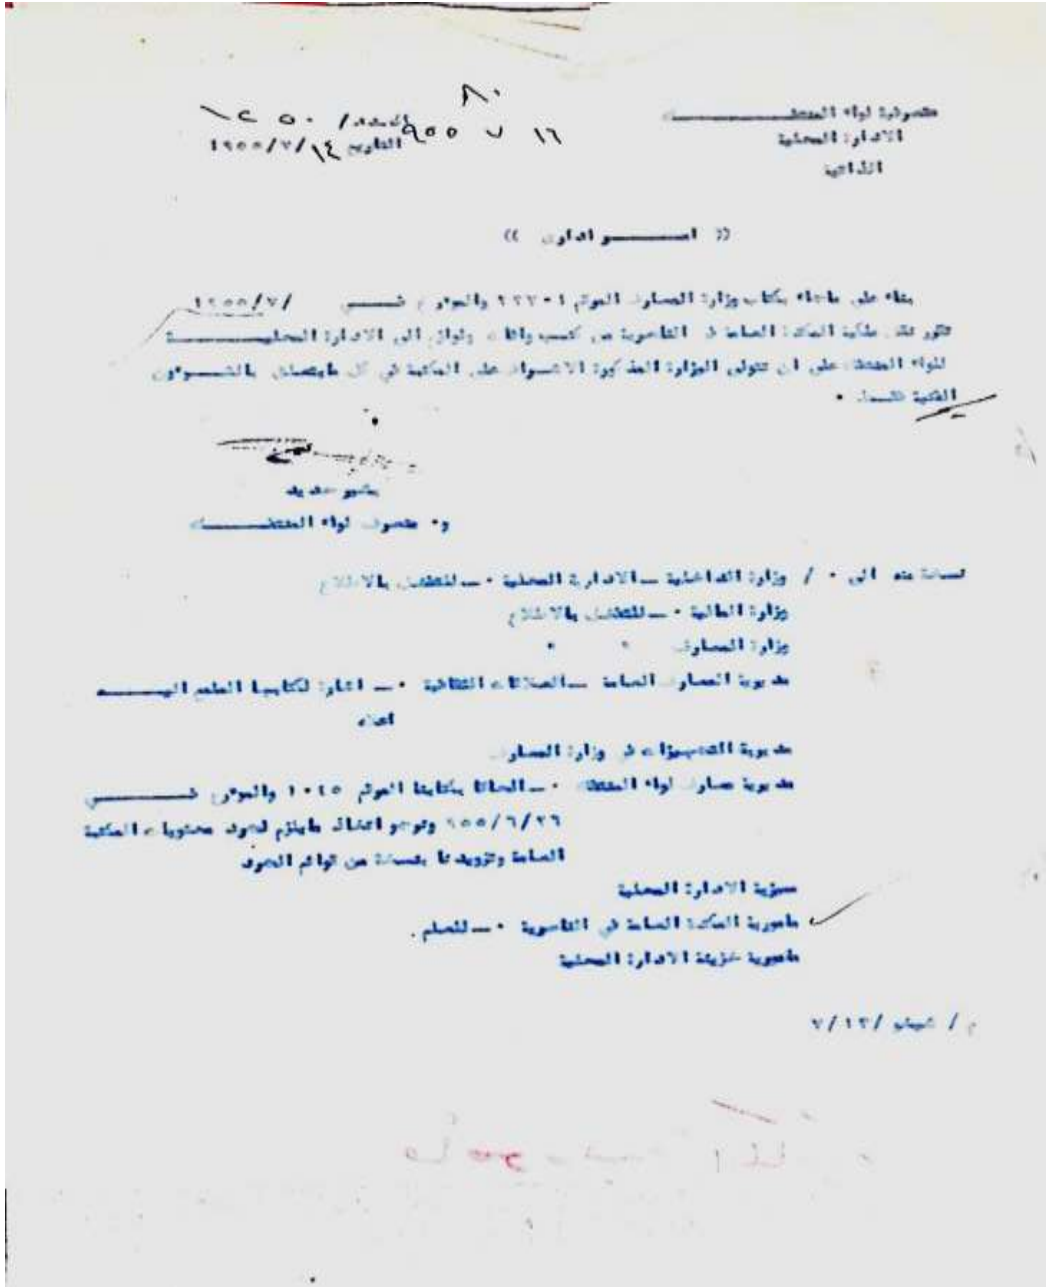 ٨٠
متصرفية لواء المنتفك العدد/ ١٢٥٠
١٦ ٧ ٩٥٥
الادارة المحلية التاريخ ١٤/٧/١٩٥٥
الذاتية
(( امـــر اداري ))
بناء على ماجاء بكتاب وزارة المعارف المرقم والمؤرخ في /٧/١٩٥٥
تقرر نقل ملكية المكتبة العامة في الناصرية من كتب واثاث ولوازم الى الادارة المحلية
للواء المنتفك على ان تتولى الوزارة المذكورة الاشراف على المكتبة في كل مايتعلق بالشؤون
الفنية
و٠ متصرف لواء المنتفك
نسخة منه الى ٠ / وزارة الداخلية ــ الادارة المحلية ٠ــ للتفضل بالاطلاع
وزارة المالية ٠ــ للتفضل بالاطلاع
وزارة المعارف " "
مديرية المعارف العامة ــ العلاقات الثقافية ٠ــ اشارة لكتابها الملمع اليه
اعلاه
مديرية التجهيزات في وزارة المعارف
مديرية معارف لواء المنتفك ٠ــ الحاقا بكتابنا المرقم ١٠٤٥ والمؤرخ في
٢٦/٦/٩٥٥ ونرجو اتخاذ مايلزم لجرد محتويات المكتبة
العامة وتزويدنا بنسخة من قوائم الجرد
مميزية الادارة المحلية
مامورية المكتبة العامة في الناصرية ٠ــ للعلم .
مامورية خزينة الادارة المحلية
٧/١٣/